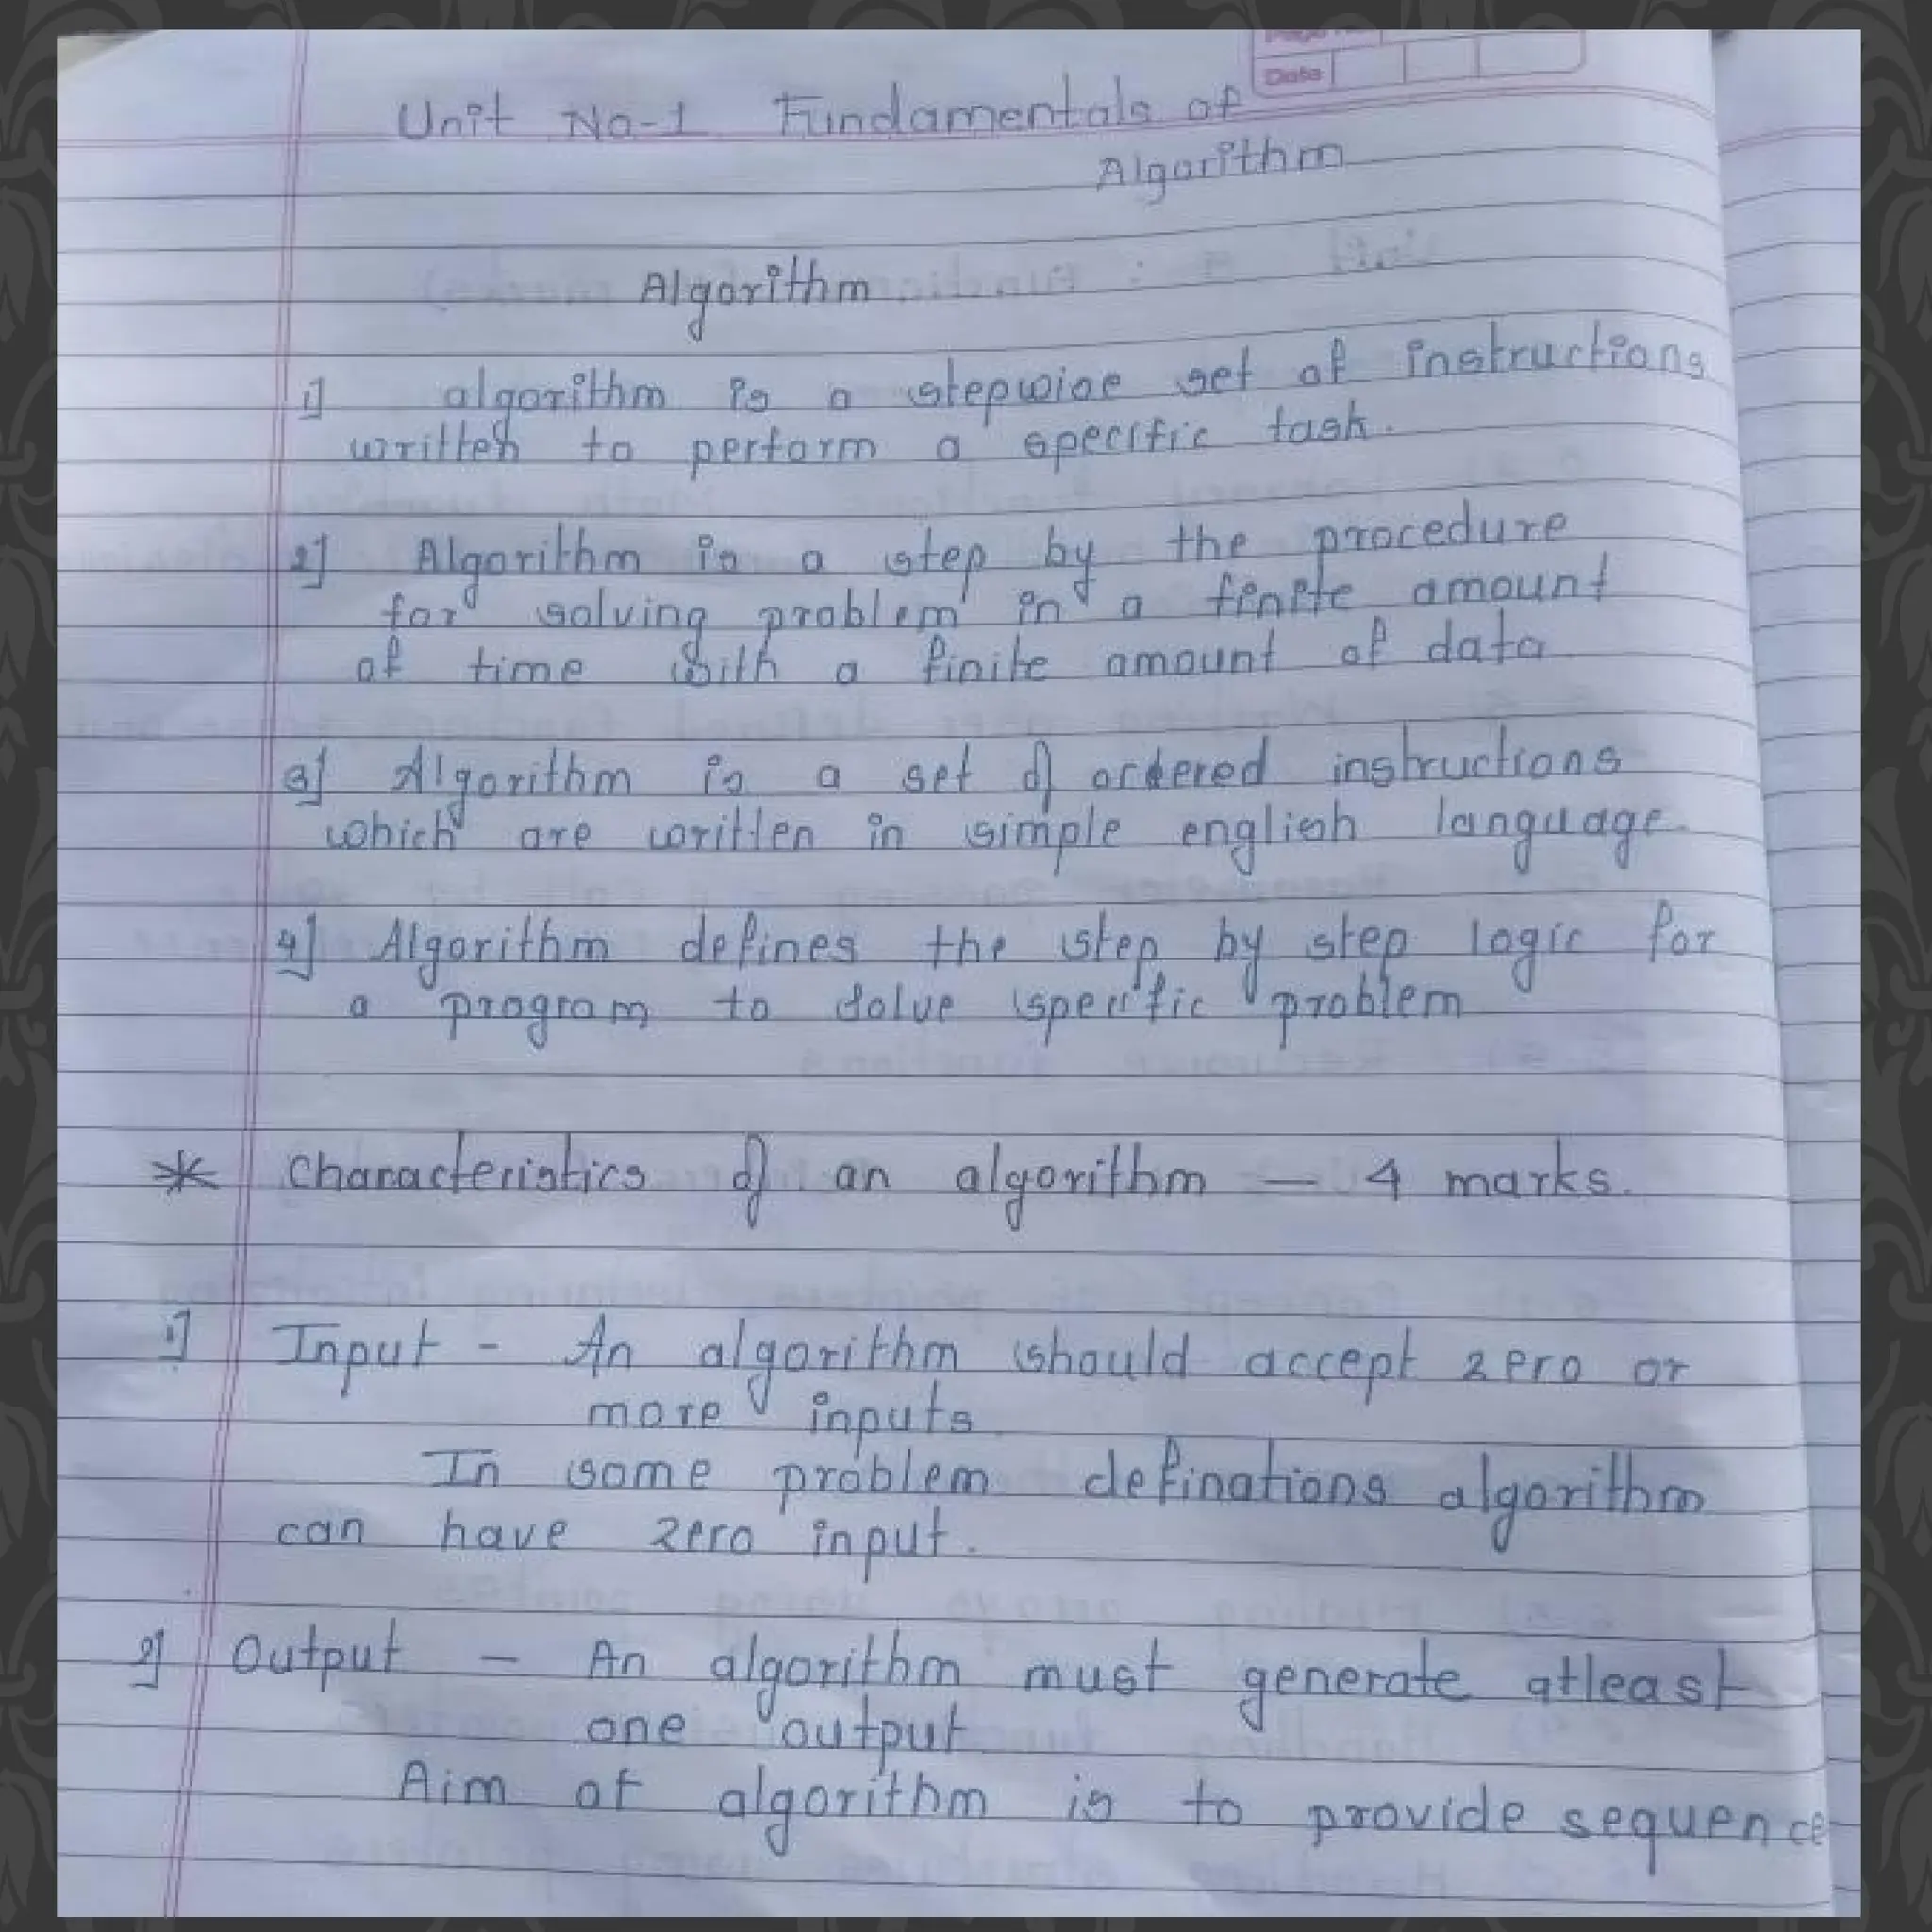 Date
Unit No-1 Fundamentals of
Algorithm
Algorithm
1] algorithm is a stepwise set of instructions
written to perform a specific task.
2] Algorithm is a step by the procedure
for solving problem in a finite amount
of time with a finite amount of data
3] Algorithm is a set of ordered instructions
which are written in simple english language.
4] Algorithm defines the step by step logic for
a program to solve specific problem
* Characteristics of an algorithm — 4 marks.
1] Input - An algorithm should accept zero or
more inputs.
In some problem definations algorithm
can have zero input.
2] Output — An algorithm must generate atleast
one output
Aim of algorithm is to provide sequence